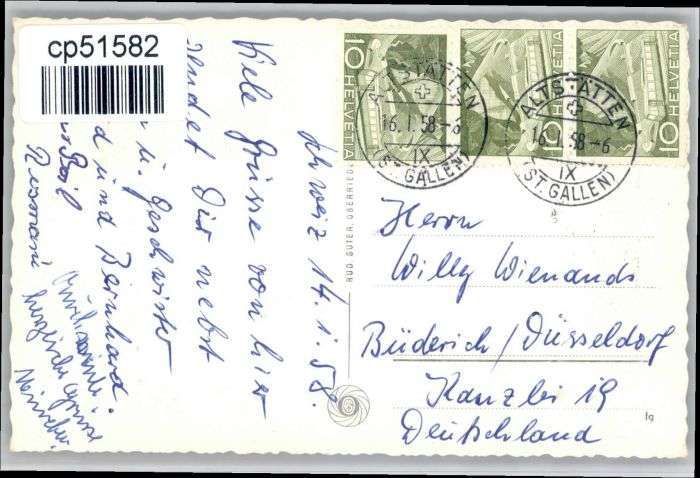 cp51582
10 HELVETIA
10 HELVETIA
10 HELVETIA
ALTSTÄTTEN
16.I.58-6
IX
(ST. GALLEN)
ALTSTÄTTEN
16. 58-6
IX
(ST. GALLEN)
Schweiz 14.1.58.
Viele Grüsse von hier
sendet Dir nebst
u. Geschwister
und Bernhard.
herzliche Grüsse
RUD. SUTER, OBERRIED
Herrn
Willy Wienands
Büderich/Düsseldorf
Kanzlei 19
Deutschland
19